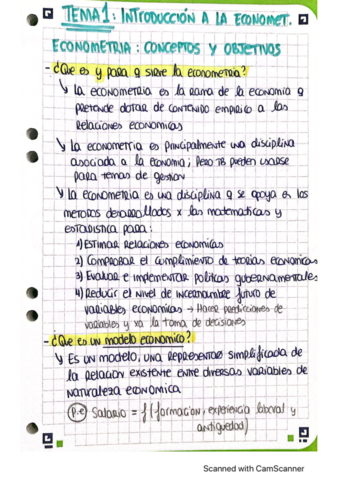 TEMA 1: INTRODUCCIÓN A LA ECONOMET.
ECONOMETRIA: CONCEPTOS Y OBJETIVOS
- ¿Que es y para q sirve la econometria?
↳ La econometria es la rama de la economia q
pretende dotar de contenido empirico a las
Relaciones economicas
↳ La econometria es principalmente una disciplina
asociada a la economia; Pero TB pueden usarse
para temas de gestion
↳ La econometria es una disciplina q se apoya en los
metodos desarrollados x las matematicas y
estadistica para:
1) Estimar relaciones economicas
2) Comprobar el cumplimiento de teorias economicas
3) Evaluar e implementar politicas gubernamentales
4) Reducir el nivel de incertidumbre futuro de
variables economicas → Hacer predicciones de
variables y xa la toma de decisiones
- ¿Que es un modelo economico?
↳ Es un modelo, una representac simplificada de
la relacion existente entre diversas variables de
naturaleza economica
(p.e) Salario = f (formacion, experiencia laboral y
antiguedad)
Scanned with CamScanner